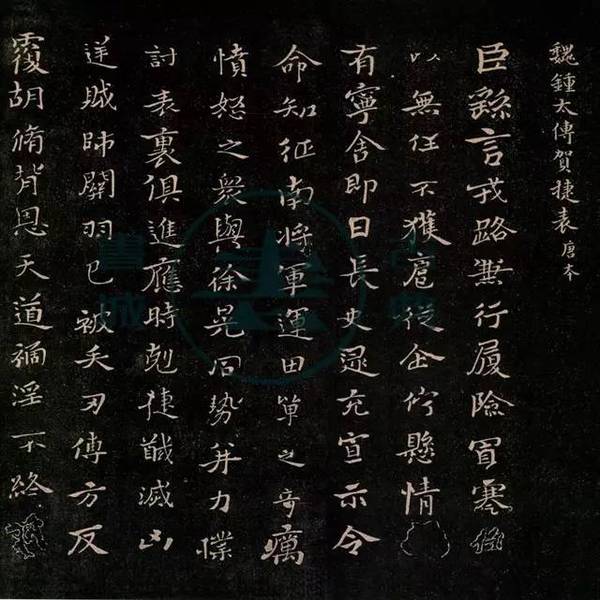 魏鍾太傅賀捷表 唐本
臣繇言戎路兼行履險冒寒
以無任不獲扈從企佇懸情
有寧舍即日長史逯充宣示令
命知征南將軍運田單之奇厲
憤怒之衆與徐晃同勢并力撲
討表裏俱進應時剋捷馘滅凶
逆賊帥關羽已被矢刃傅方反
覆胡脩背恩天道禍淫不終